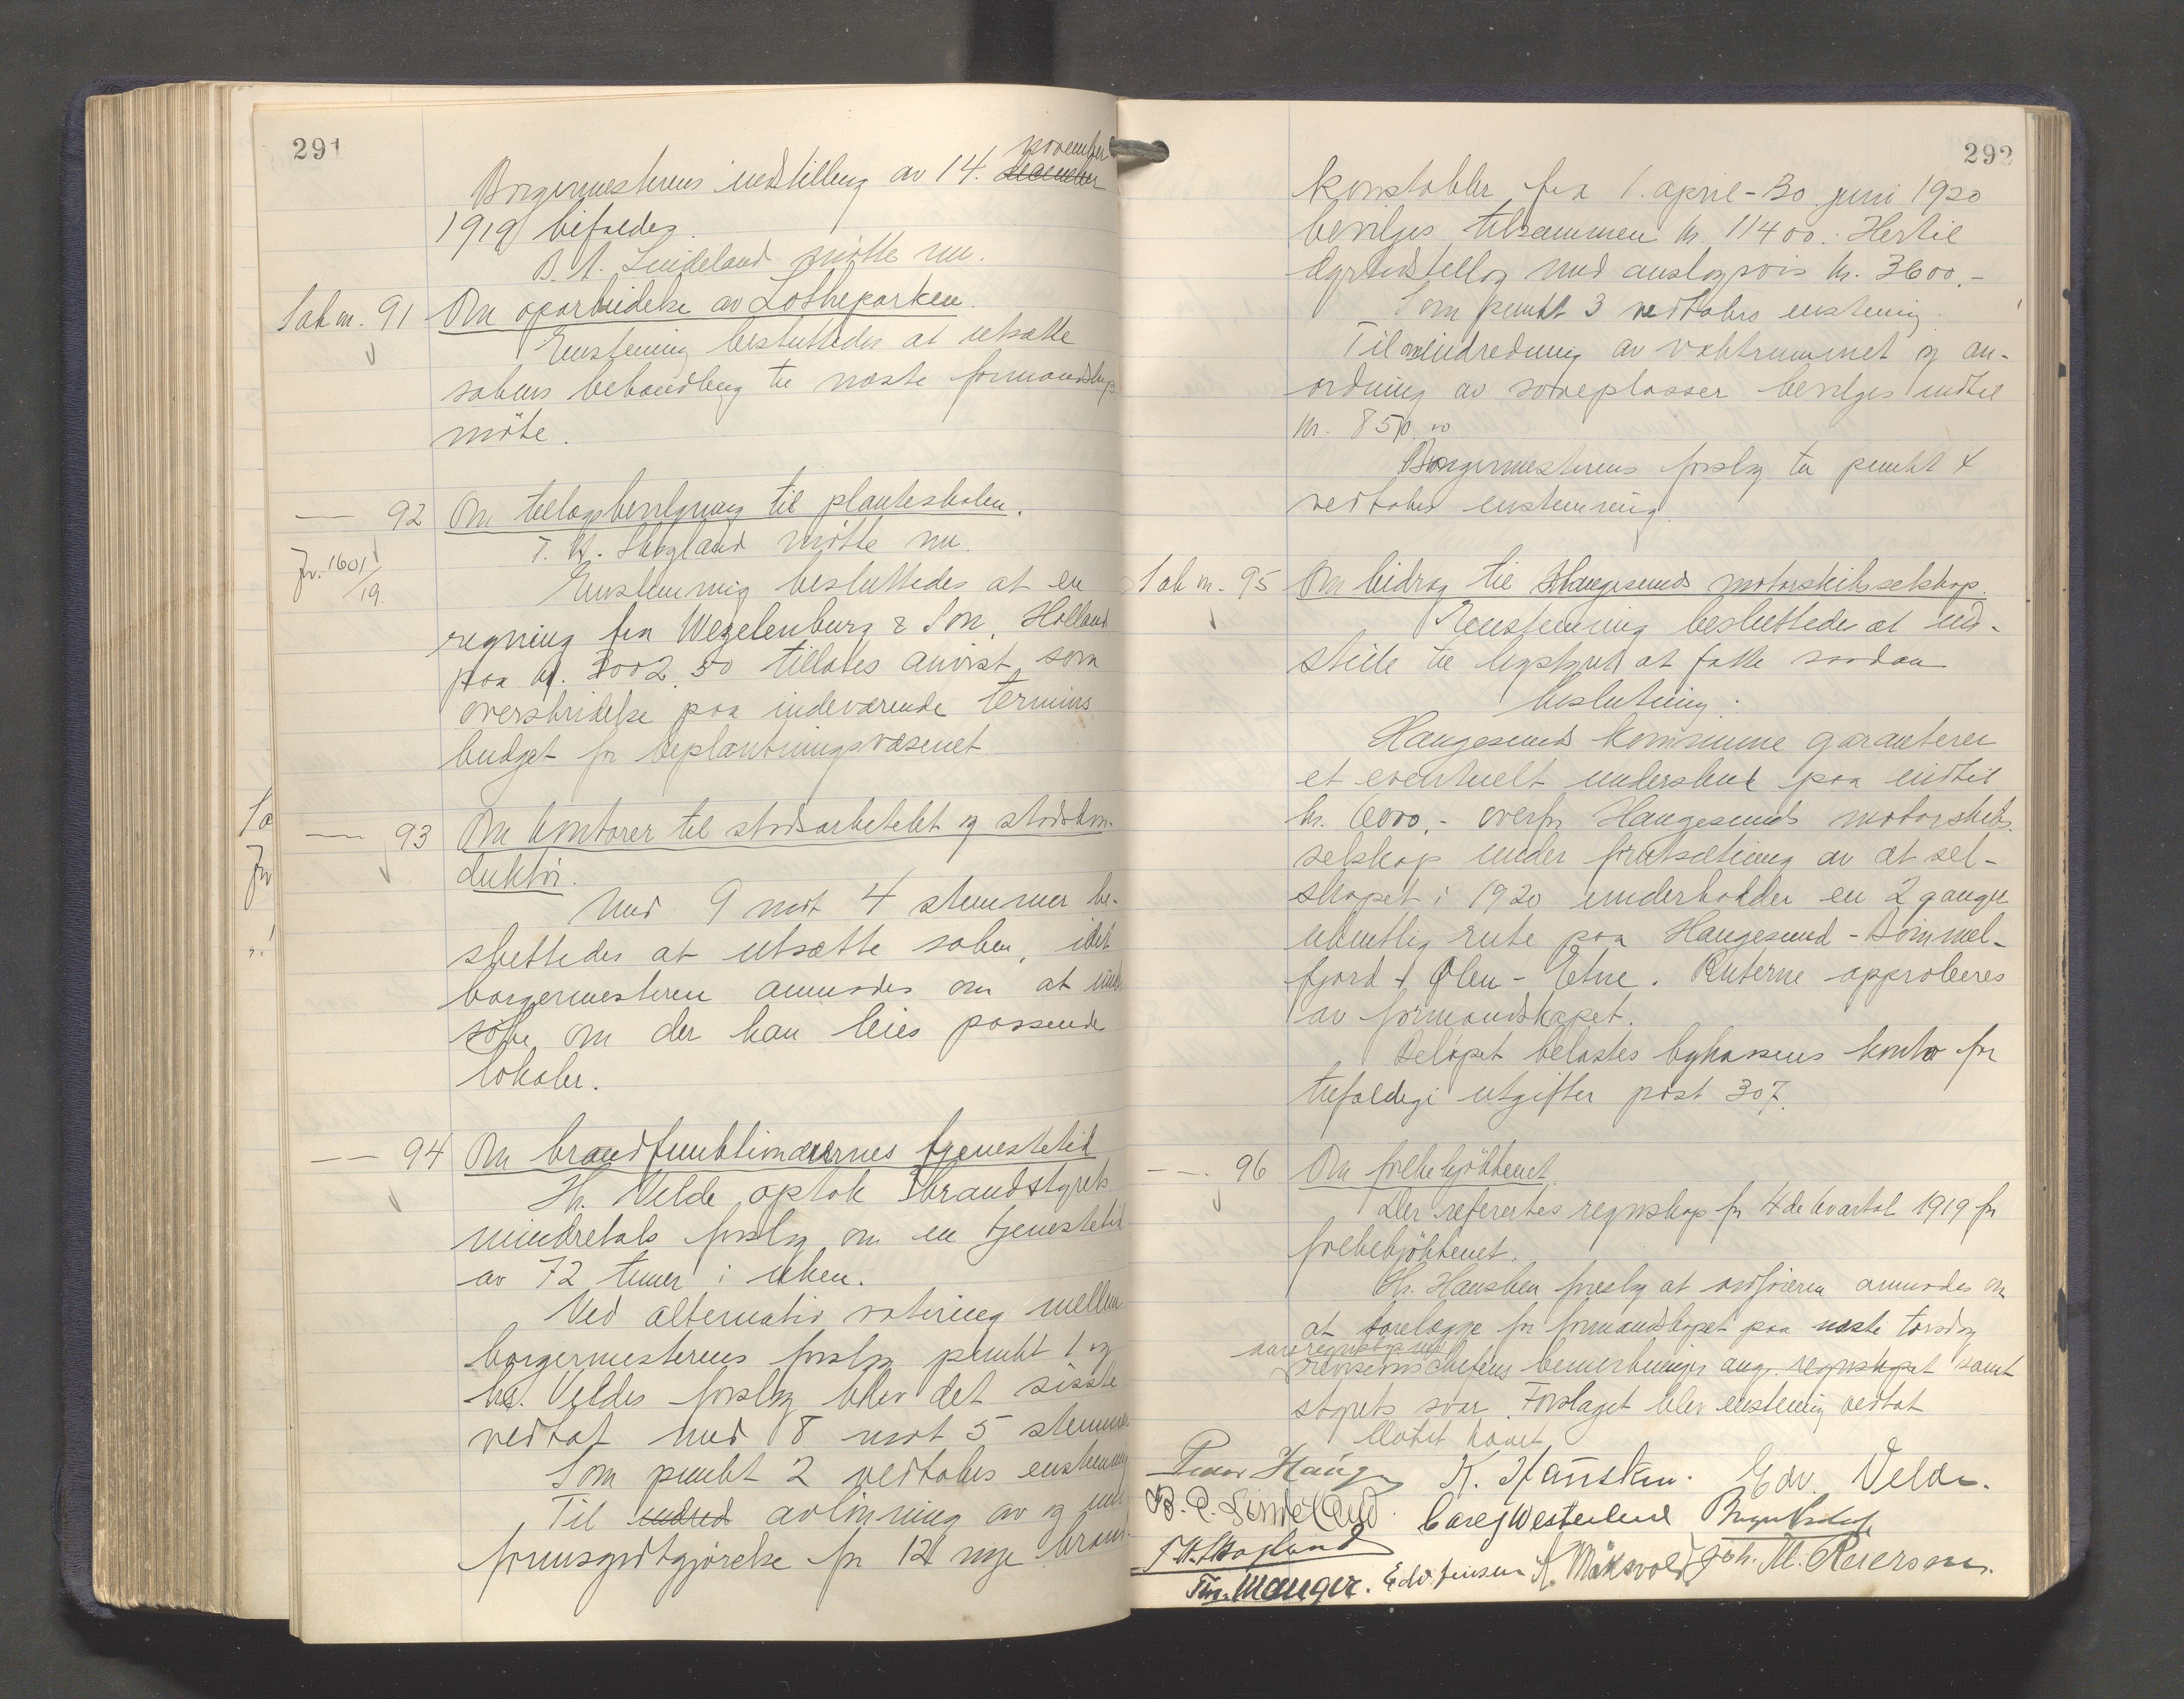 291
november
Borgermesterens indstilling av 14. december
1919 bifaldes.
B. A. Lindeland møtte nu.
Sak nr. 91 Om oparbeidelse av Lotheparken.
Enstemmig besluttedes at utsætte
sakens behandling til næste formandskaps
møte.
— 92 Om tillægsbevilgning til planteskolen.
T. K. Skogland møtte nu.
Jr. 1601/19.
Enstemmig besluttedes at en
regning fra Wezelenburg & Son, Holland
paa kr. 2002.50 tillates anvist som
overskridelse paa indeværende termins
budget for beplantningsvæsenet
— 93 Om kontorer til stadsarkitekt og stadskon-
duktør.
Med 9 mot 4 stemmer be-
sluttedes at utsætte saken, idet
borgermesteren anmodes om at under
søke om der kan leies passende
lokaler.
— 94 Om brandfunktionærernes tjenestetid
Hr. Velde optok brandstyrets
mindretals forslag om en tjenestetid
av 72 timer i uken.
Ved alternativ votering mellem
borgermesterens forslag punkt 1 og
hr. Veldes forslag blev det sisste
vedtat med 8 mot 5 stemmer
Som punkt 2 vedtokes enstemmig
Til indred avlønning av og uni
formsgodtgjørelse for 12 nye brand-
292
konstabler fra 1. april - 30. juni 1920
bevilges tilsammen kr. 11400. Hertil
dyrtidstillæg med anslagsvis kr. 3600,-
Som punkt 3 vedtokes enstemmig.
Til omindredning av vaktrummet og an-
ordning av soveplasser bevilges indtil
kr. 850.00
Borgermesterens forslag til punkt 4
vedtokes enstemmig.
Sak nr. 95 Om bidrag til Haugesunds motorskibsselskap.
Enstemmig besluttedes at ind-
stille til bystyret at fatte saadan
beslutning:
Haugesunds kommune garanterer
et eventuelt underskud paa indtil
kr. 6000,- overfor Haugesunds motorskibs-
selskap under forutsætning av at sel-
skapet i 1920 underholder en 2 ganger
ukentlig rute paa Haugesund - Bømmel-
fjord - Ølen - Etne. Ruterne approberes
av formandskapet.
Beløpet belastes bykassens konto for
tilfældige utgifter post 307.
— 96 Om folkekjøkkenet.
Der refertes regnskap for 4de kvartal 1919 for
folkekjøkkenet.
Hr. Hansken foreslog at ordføreren anmodes om
at forelægge for formandskapet paa næste torsdag
aarsregnskap med
revisionschefens bemerkninger ang. regnskapet samt
styrets svar. Forslaget blev enstemmig vedtat
Møtet hævet
Peder Haugen K. Hansken. Edv. Velde.
B. A. Lindeland. Carej Westerlund
T. K. Skogland Edv. Jensen K. Måksvold Joh. M. Reiersen.
Thv. Mauger.